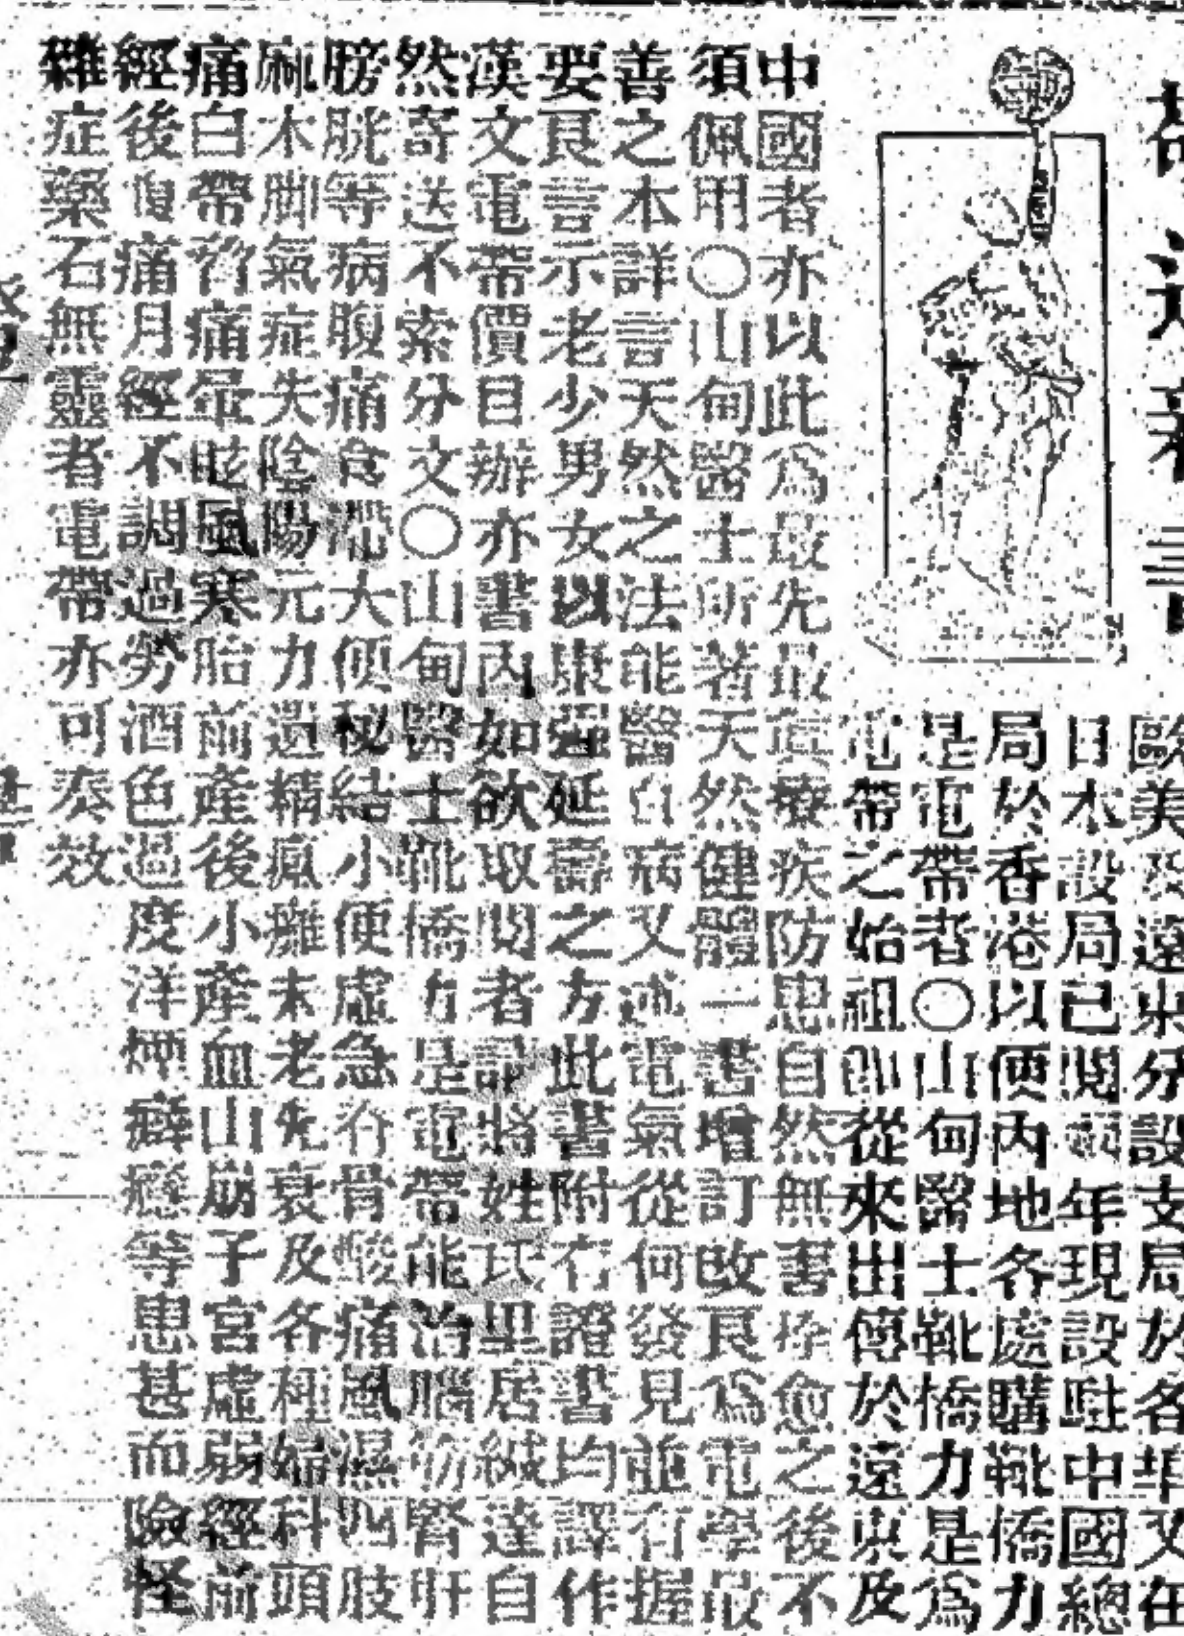 歐美及遠東分設支局於各埠又在
日本設局已閱兩年現設駐中國總
局於香港以便內地各處購靴僑力
是電帶者〇山甸醫士靴僑力是為
電帶之始祖即從來出傳於遠東及
中國者亦以此為最先最真療疾防患自然無害痊愈之後不
須佩用〇山甸醫士所著天然健體一書增訂改良為電學最
善之本詳言天然之法能醫百病又述電氣從何發見並有握
要良言示老少男女以康强延壽之方此書附有證書均譯作
漢文電帶價目辦亦書內如欲取閱者請將姓氏里居緘達自
然寄送不索分文〇山甸醫士靴僑力是電帶能治腦筋腎肝
膀胱等病腹痛食滯大便秘結小便虛急脊骨酸痛風濕四肢
麻木脚氣症失陰陽元力遺精瘋癱未老先衰及各種婦科頭
痛白帶背痛暈眩風寒胎前產後小產血山崩子宮虛弱經前
經後腹痛月經不調過勞酒色過度洋煙癖癮等患甚而險怪
雜症藥石無靈者電帶亦可奏效